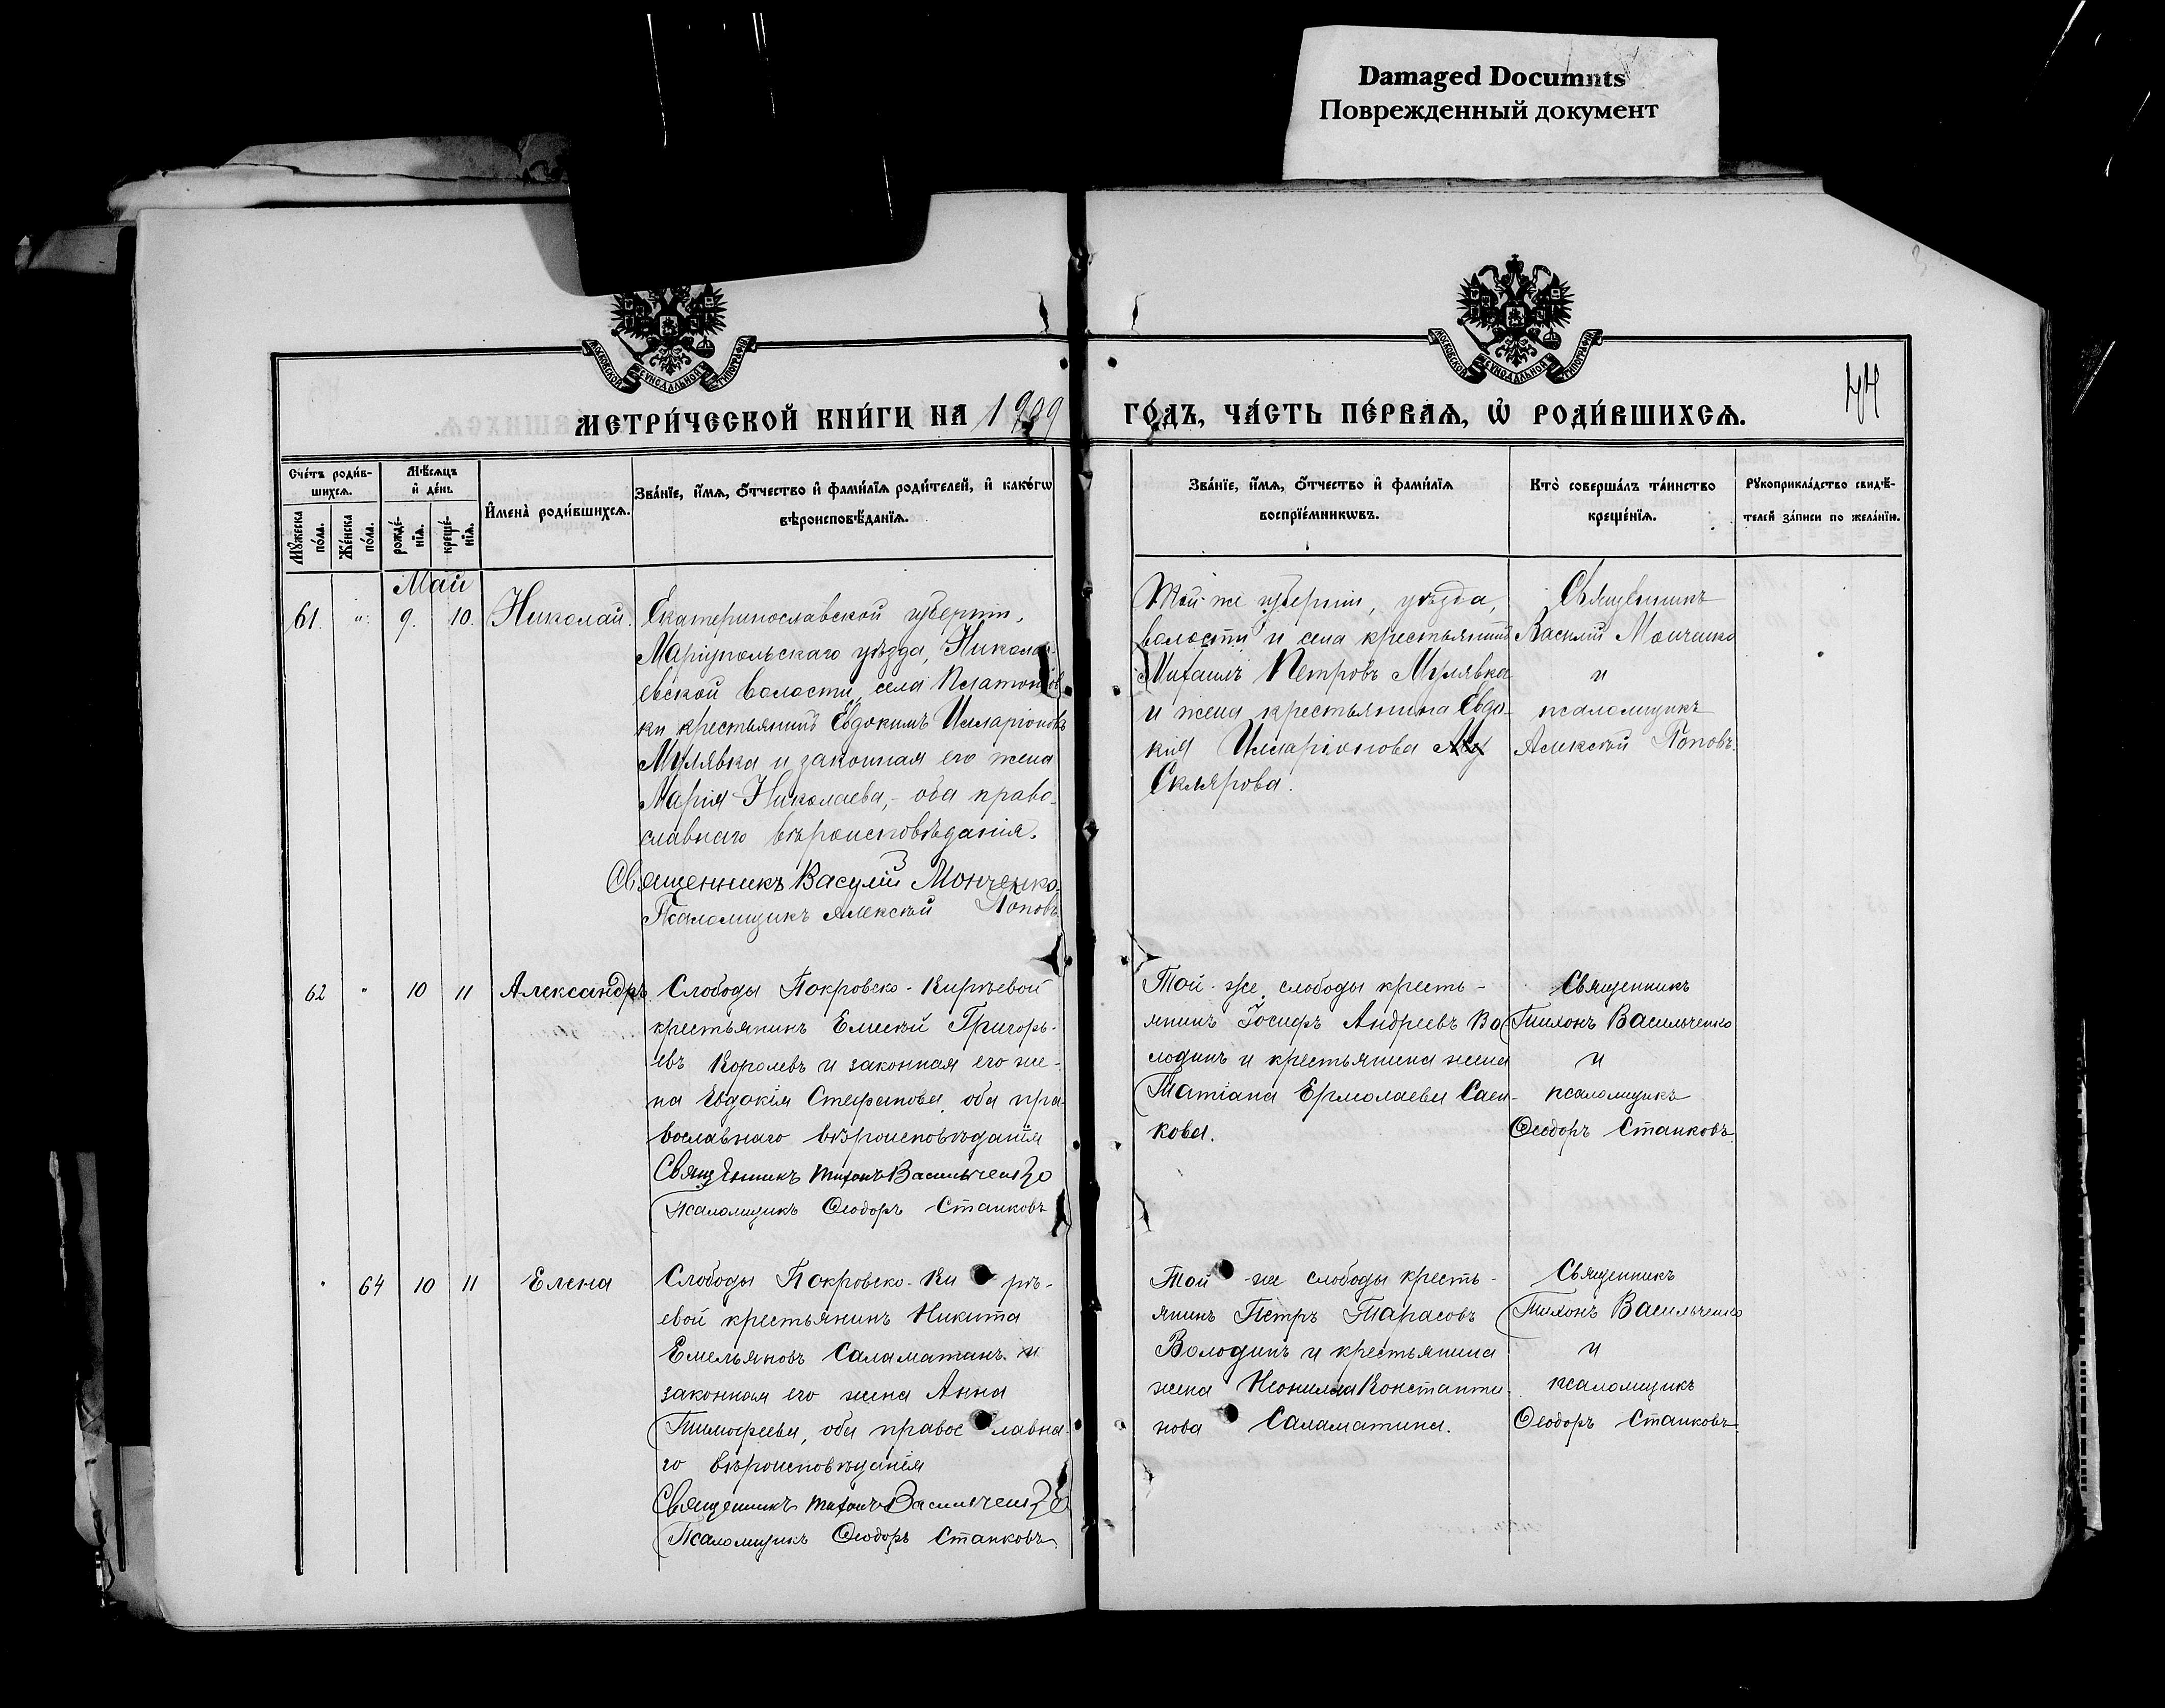 Damaged Documnts
Поврежденный документ
МОСКОВСКОЙ СѴНОДАЛЬНОЙ ТИПОГРАФІИ
МОСКОВСКОЙ СѴНОДАЛЬНОЙ ТИПОГРАФІИ
МЕТРИ́ЧЕСКОЙ КНИ́ГИ НА 1909
ГО́ДЪ, ЧА́СТЬ ПЕ́РВАѦ, Ѡ҆ РОДИ́ВШИХСѦ.
44
Сче́тъ роди́в-
шихсѧ.
Мѣ́сѧцъ
и҆ де́нь
И҆мена̀ роди́вшихсѧ.
Зва́нїе, и҆́мѧ, ѻ҆́тчество и҆ фами́лїѧ роди́телей, и҆ како́гѡ
вѣроисповѣ́данїѧ.
Мꙋ́жеска
по́ла.
Же́нска
по́ла.
рожде́-
нїѧ.
креще́-
нїѧ.
Зва́нїе, и҆́мѧ, ѻ҆́тчество и҆ фами́лїѧ
воспрїе́мникѡвъ.
Кто̀ соверша́лъ та́инство
креще́нїѧ.
Рꙋкоприкла́дство свидѣ́-
телей за́писи по жела́нїю.
Май
61. " 9. 10. Николай.
Екатеринославской губерніи,
Маріупольскаго уѣзда, Никола-
евской волости, села Платонов
ки крестьянинъ Евдокимъ Илларіоновъ
Мулявка и законная его жена
Марія Николаева, - оба право-
славнаго вѣроисповѣданія.
Священникъ Василій Мончвенко
Псаломщикъ Алексѣй Поповъ
Той-же губерніи, уѣзда,
волости и села крестьянинъ
Михаилъ Петровъ Мулявка
и жена крестьянина Евдо-
кія Илларіонова Му
Склярова.
Священникъ
Василій Монченко
и
псаломщикъ
Алексѣй Поповъ.
62 " 10 11 Александръ
Слободы Покровско-Кирѣевой
крестьянинъ Елисѣй Григорь-
евъ Королевъ и законная его же-
на Евдокія Стефанова, оба пра-
вославнаго вѣроисповѣданія
Священникъ Тихонъ Васильченко
Псаломщикъ Ѳеодоръ Станковъ
Той-же слободы кресть-
янинъ Іосифъ Андреевъ Во
лодинъ и крестьянина жена
Татіана Ермолаева Саен-
кова.
Священникъ
Тихонъ Васильченко
и
псаломщикъ
Ѳеодоръ Станковъ.
" 64 10 11 Елена
Слободы Покровско-Ки рѣ-
евой крестьянинъ Никита
Емельяновъ Саламатинъ и
законная его жена Анна
Тимофеева, оба правос лавна-
го вѣроисповѣданія
Священникъ Тихонъ Васильченко
Псаломщикъ Ѳеодоръ Станковъ
Той -же слободы кресть-
янинъ Петръ Тарасовъ
Володинъ и крестьянина
жена Неонилла Константи-
нова Саламатина.
Священникъ
Тихонъ Васильченко
и
псаломщикъ
Ѳеодоръ Станковъ